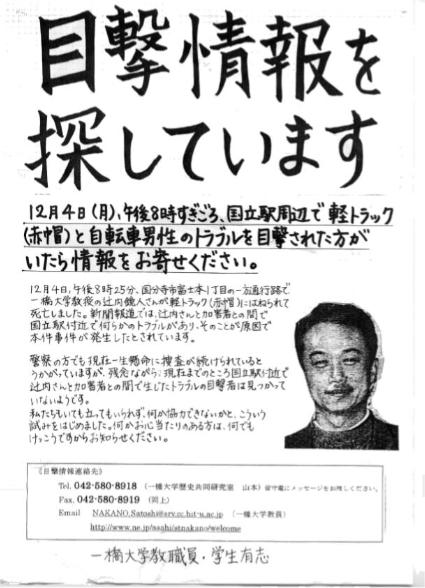 目撃情報を
探しています
12月4日(月)、午後8時すぎごろ、国立駅周辺で軽トラック
(赤帽)と自転車男性のトラブルを目撃された方が
いたら情報をお寄せください。
12月4日、午後8時25分、国分寺市富士本1丁目の一方通行路で
一橋大学教授の辻内鏡人さんが軽トラック(赤帽)にはねられて
死亡しました。新聞報道では、辻内さんと加害者との間で
国立駅付近で何らかのトラブルがあり、そのことが原因で
本件事件が発生したとされています。
警察の方でも現在一生懸命に捜査が続けられていると
うかがっていますが、残念ながら、現在までのところ国立駅付近で
辻内さんと加害者との間で生じたトラブルの目撃者は見つかって
いけないようです。
私たちもいても立ってもいられず、何か協力できないかと、こういう
試みをはじめました。何かお心当たりのある方は、何でも
けっこうですからお知らせください。
《目撃情報連絡先》
Tel. 042-580-8918 (一橋大学歴史共同研究室 山本) 留守電にメッセージをお残しください。
Fax. 042-580-8919 (同上)
Email NAKANO,Satoshi@srv.cc.hit-u.ac.jp (一橋大学教員)
http://www.ne.jp/asahi/stnakano/welcome
一橋大学教職員・学生有志